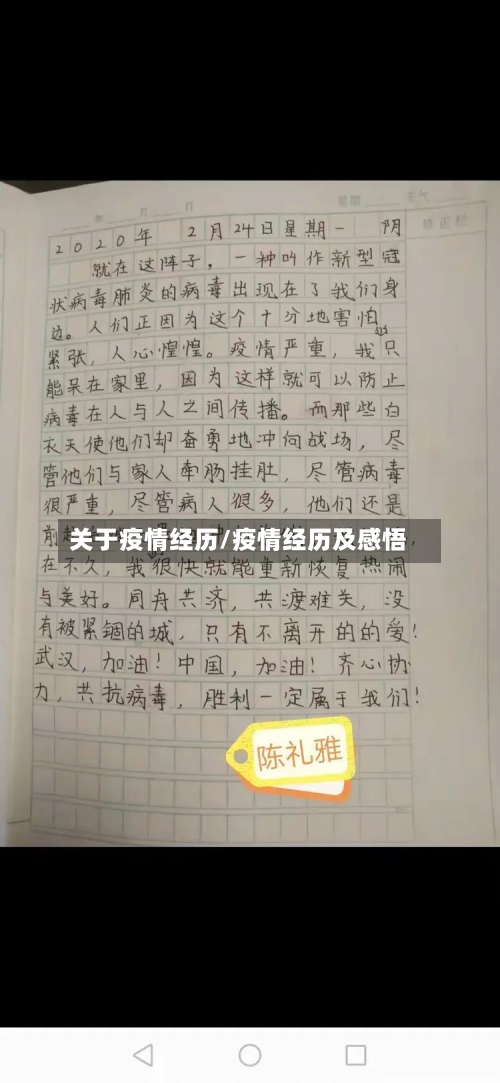 年 月 日 星期 天气
修正栏
2020年 2月24日星期一 阴
就在这阵子，一种叫作新型冠
状病毒肺炎的病毒出现在了我们身
边。人们正因为这个十分地害怕
紧张，人心惶惶。疫情严重，我只
能呆在家里，因为这样就可以防止
病毒在人与人之间传播。而那些白
衣天使他们却奋勇地冲向战场，尽
管他们与家人牵肠挂肚，尽管病毒
很严重，尽管病人很多，他们还是
前
关于疫情经历/疫情经历及感悟
在不久，我很快就能重新恢复热闹
与美好。同舟共济，共渡难关，没
有被紧锢的城，只有不离开的的爱！
武汉，加油！中国，加油！齐心协
力，共抗病毒，胜利一定属于我们！
陈礼雅